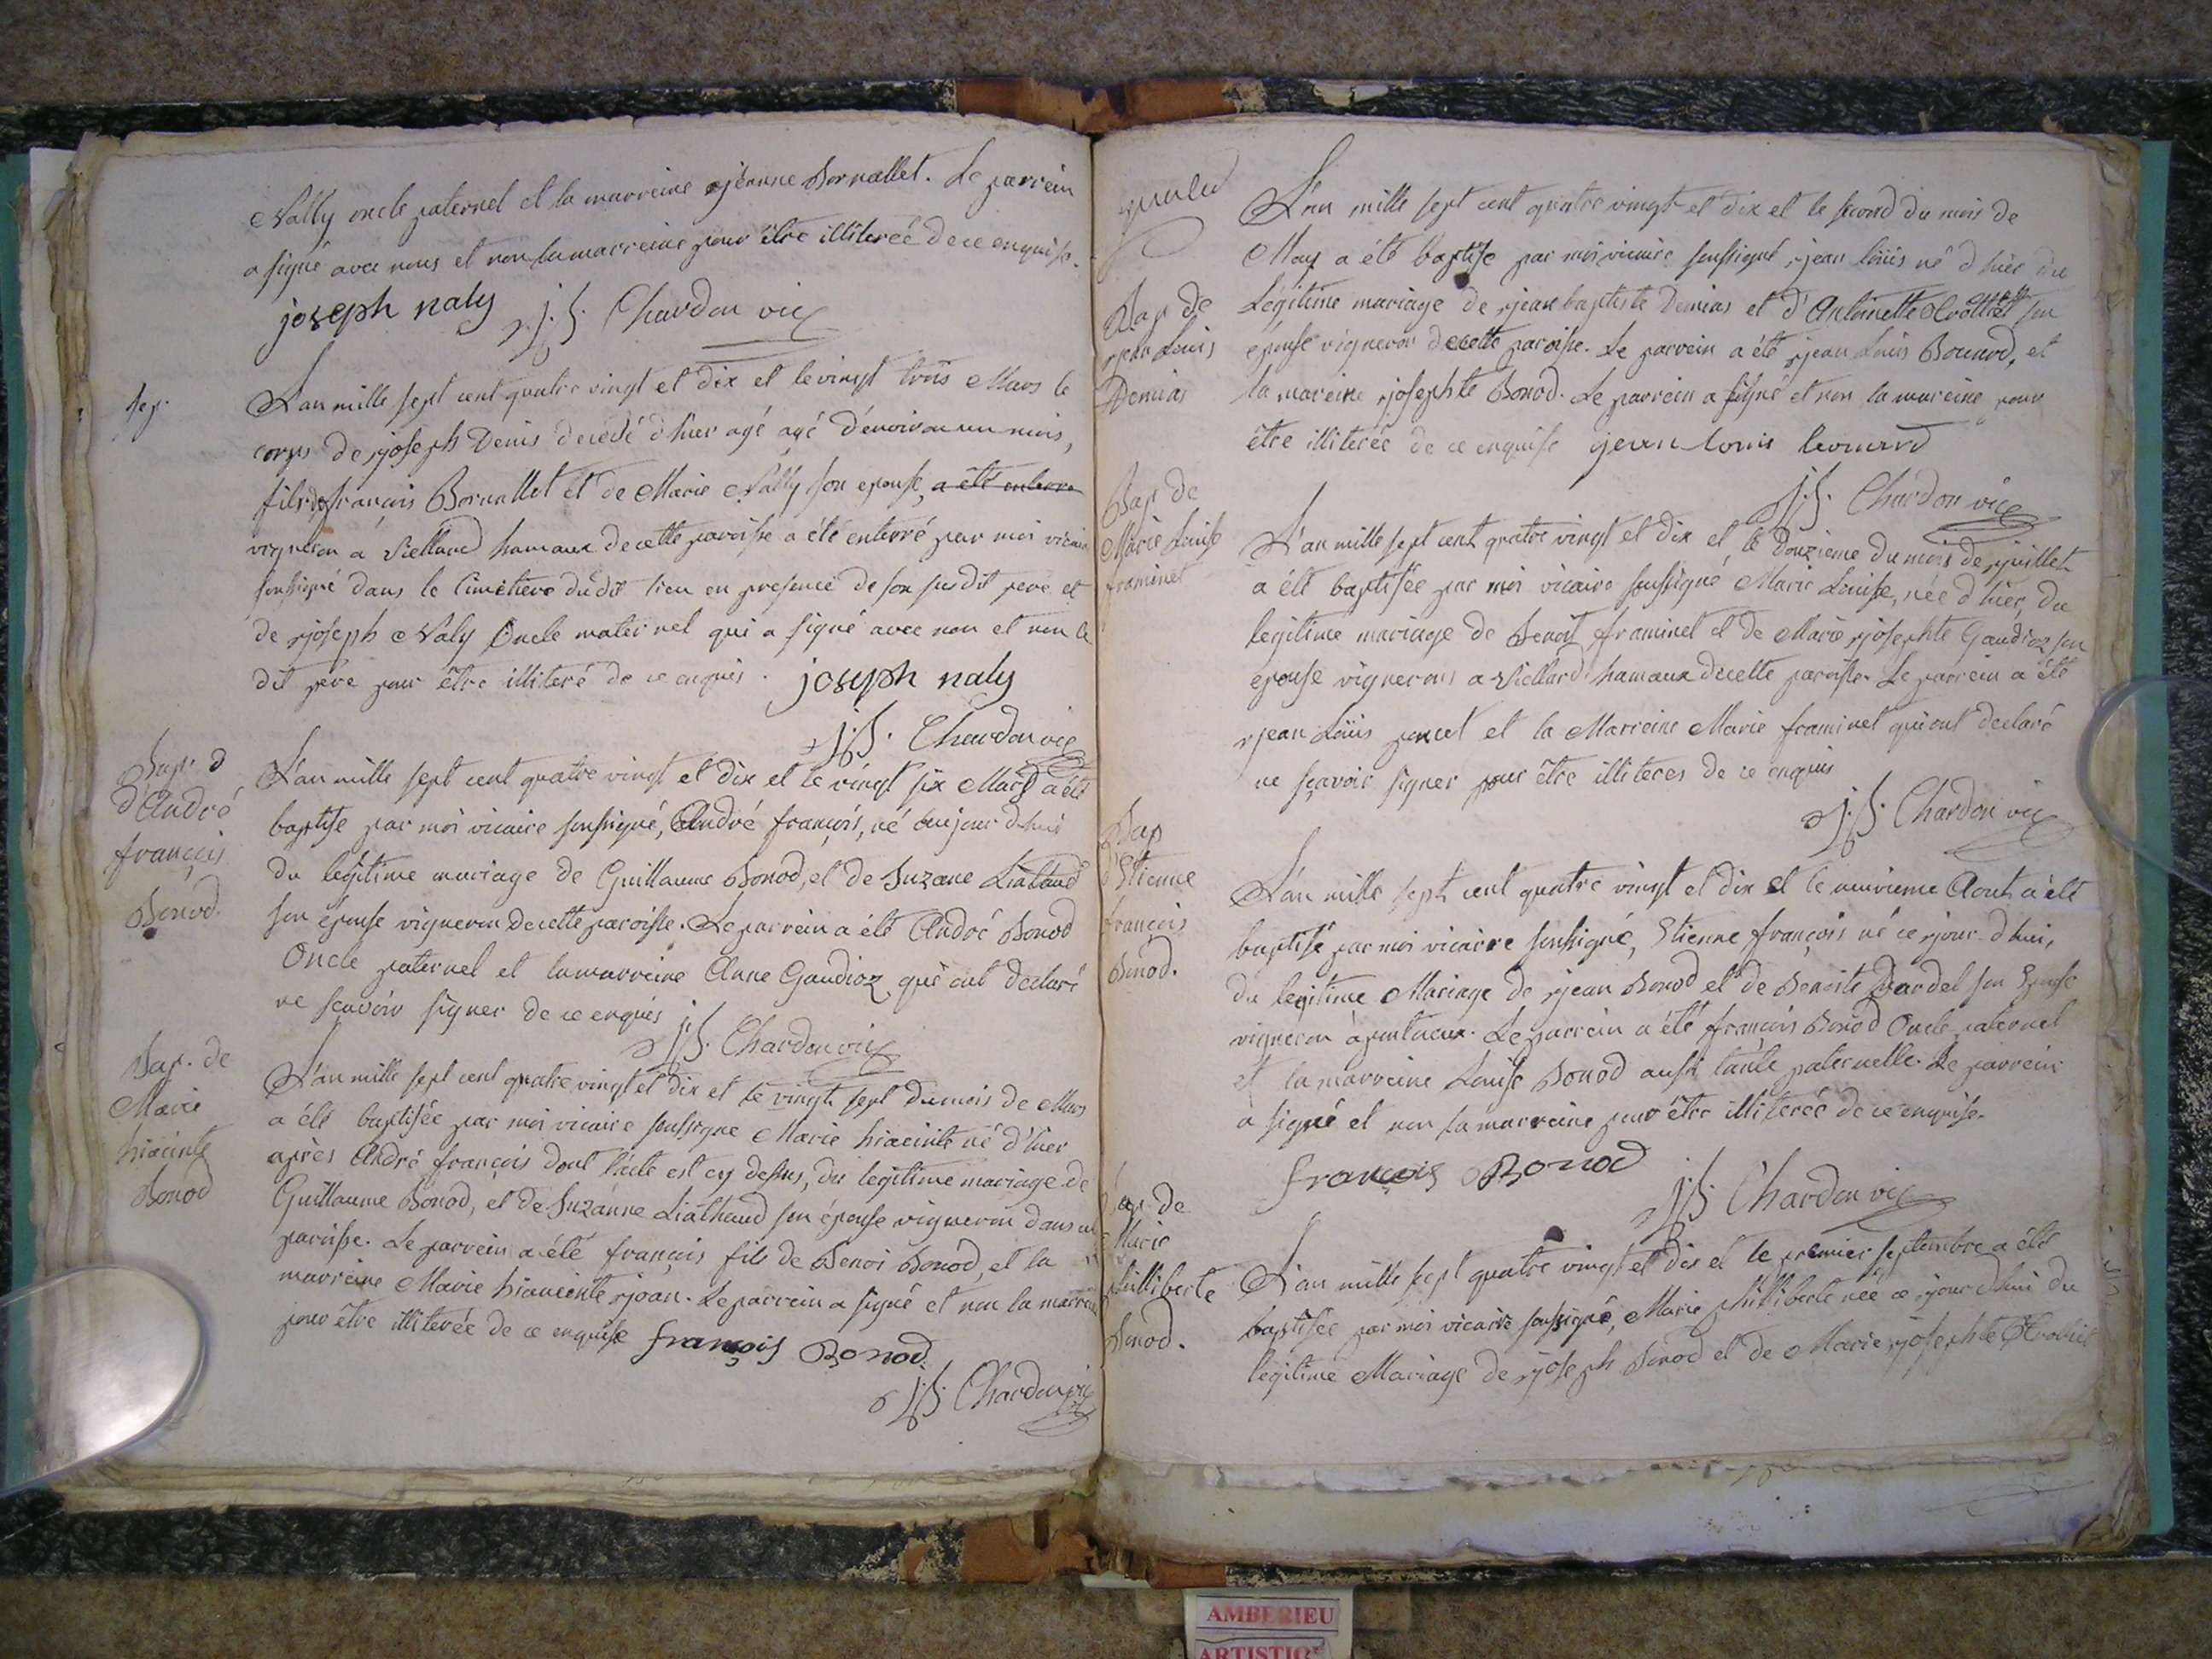 Nally oncle paternel et la marreine jeanne Bornallet. Le parrein
a signé avec nous et non la marreine pour être illiterée de ce enquise.
joseph naly j. S. Chardon vic
Sep.
L'an mille sept cent quatre vingt et dix et le vingt trois Mars le
corps de joseph Denis decedé d'hier agé agé d'environ un mois,
fils de françois Bornallet et de Marie Nally son epouse, a été enterré
vigneron à Viellard hamaux de cette paroisse a été enterré par moi vicaire
soussigné dans le Cimetiere dudit lieu en presence de son susdit pere et
de joseph Naly Oncle maternel qui a signé avec nou et non le
dit pére pour être illiteré de ce enquis. joseph naly
j. S. Chardon vic
Bap. d
d'André
françois
Bonod.
L'an mille sept cent quatre vingt et dix et le vingt six Mars a été
baptise par moi vicaire soussigné, André françois, né aujour d'hui
du legitime mariage de Guillaume Bonod, et de Suzane Liataud
son épouse vigneron de cette paroisse. Le parrein a été André Bonod
Oncle paternel et la marreine Anne Gaudioz qui ont declaré
ne scavoir signer de ce enquis j. S. Chardon vic
Bap. de
Marie
hiacinte
Bonod
L'an mille sept cent quatre vingt et dix et le vingt sept du mois de Mars
a été baptisée par moi vicaire soussigne Marie hiacinte né d'hier
après André françois dont l'acte est cy dessus, du legitime mariage de
Guillaume Bonod, et de Suzanne Liathaud son épouse vigneron dans
paroisse. Le parrein a été françois fils de Benoi Bonod, et la
marreine Marie hiancinte joan. Le parrein a signé et non la marreine
pour être illiterée de ce enquise françois Bonod.
j. S. Chardon vic
Bap de
jean Louis
Demias
L'an mille sept cent quatre vingt et dix et le second du mois de
May a été baptise par moi vicaire soussigné, jean loüis né d'hier du
Légitime mariage de jean baptiste Demias et d'Antoinette son
épouse vigneron de cette paroisse. Le parrein a été jean Louis Bounard, et
la mareine josephte Bonod. Le parrein a signé et non la mareine pour
être illiterée de ce enquise jean louis leonard
j. S. Chardon vic
Bap de
Marie Louise
framinet
L'an mille sept cent quatre vingt et dix et le douzieme du mois de juillet
a été baptisée par moi vicaire soussigné Marie Louise, née d'hier, du
legitime mariage de Benoit framinet et de Marie josephte Gaudioz son
epouse vignerons a Viellard hamaux de cette paroisse. Le parrein a été
jean Loüis poncet et la Marreine Marie framinet qui ont declaré
ne sçavoir signer pour être illiteres de ce enquis
j. S. Chardon vic
Bap
d'Etienne
françois
Bonod.
L'an mille sept cent quatre vingt et dix et le neuvieme Aout a été
baptisé par moi vicairre soussigné, Etienne françois né ce jour-d'hui,
du legitime Mariage de jean Bonod et de Benoite Dardel son Epouse
vigneron à. Le parrein a été françois Bonod Oncle paternel
et la marreine Louise Bonod aussi tante paternelle. Le parrein
a signé et non la marreine pour être illiterée de ce enquise.
françois Bonod
j. S. Chardon vic
Bap de
Marie
philliberte
Bonod.
L'an mille sept quatre vingt et dix et le premier septembre a été
baptisée par moi vicaire soussigné, Marie phillиberte née ce jour d'hui du
legitime Mariage de joseph Bonod et de Marie josephte
AMBERIEU
ARTISTIQU